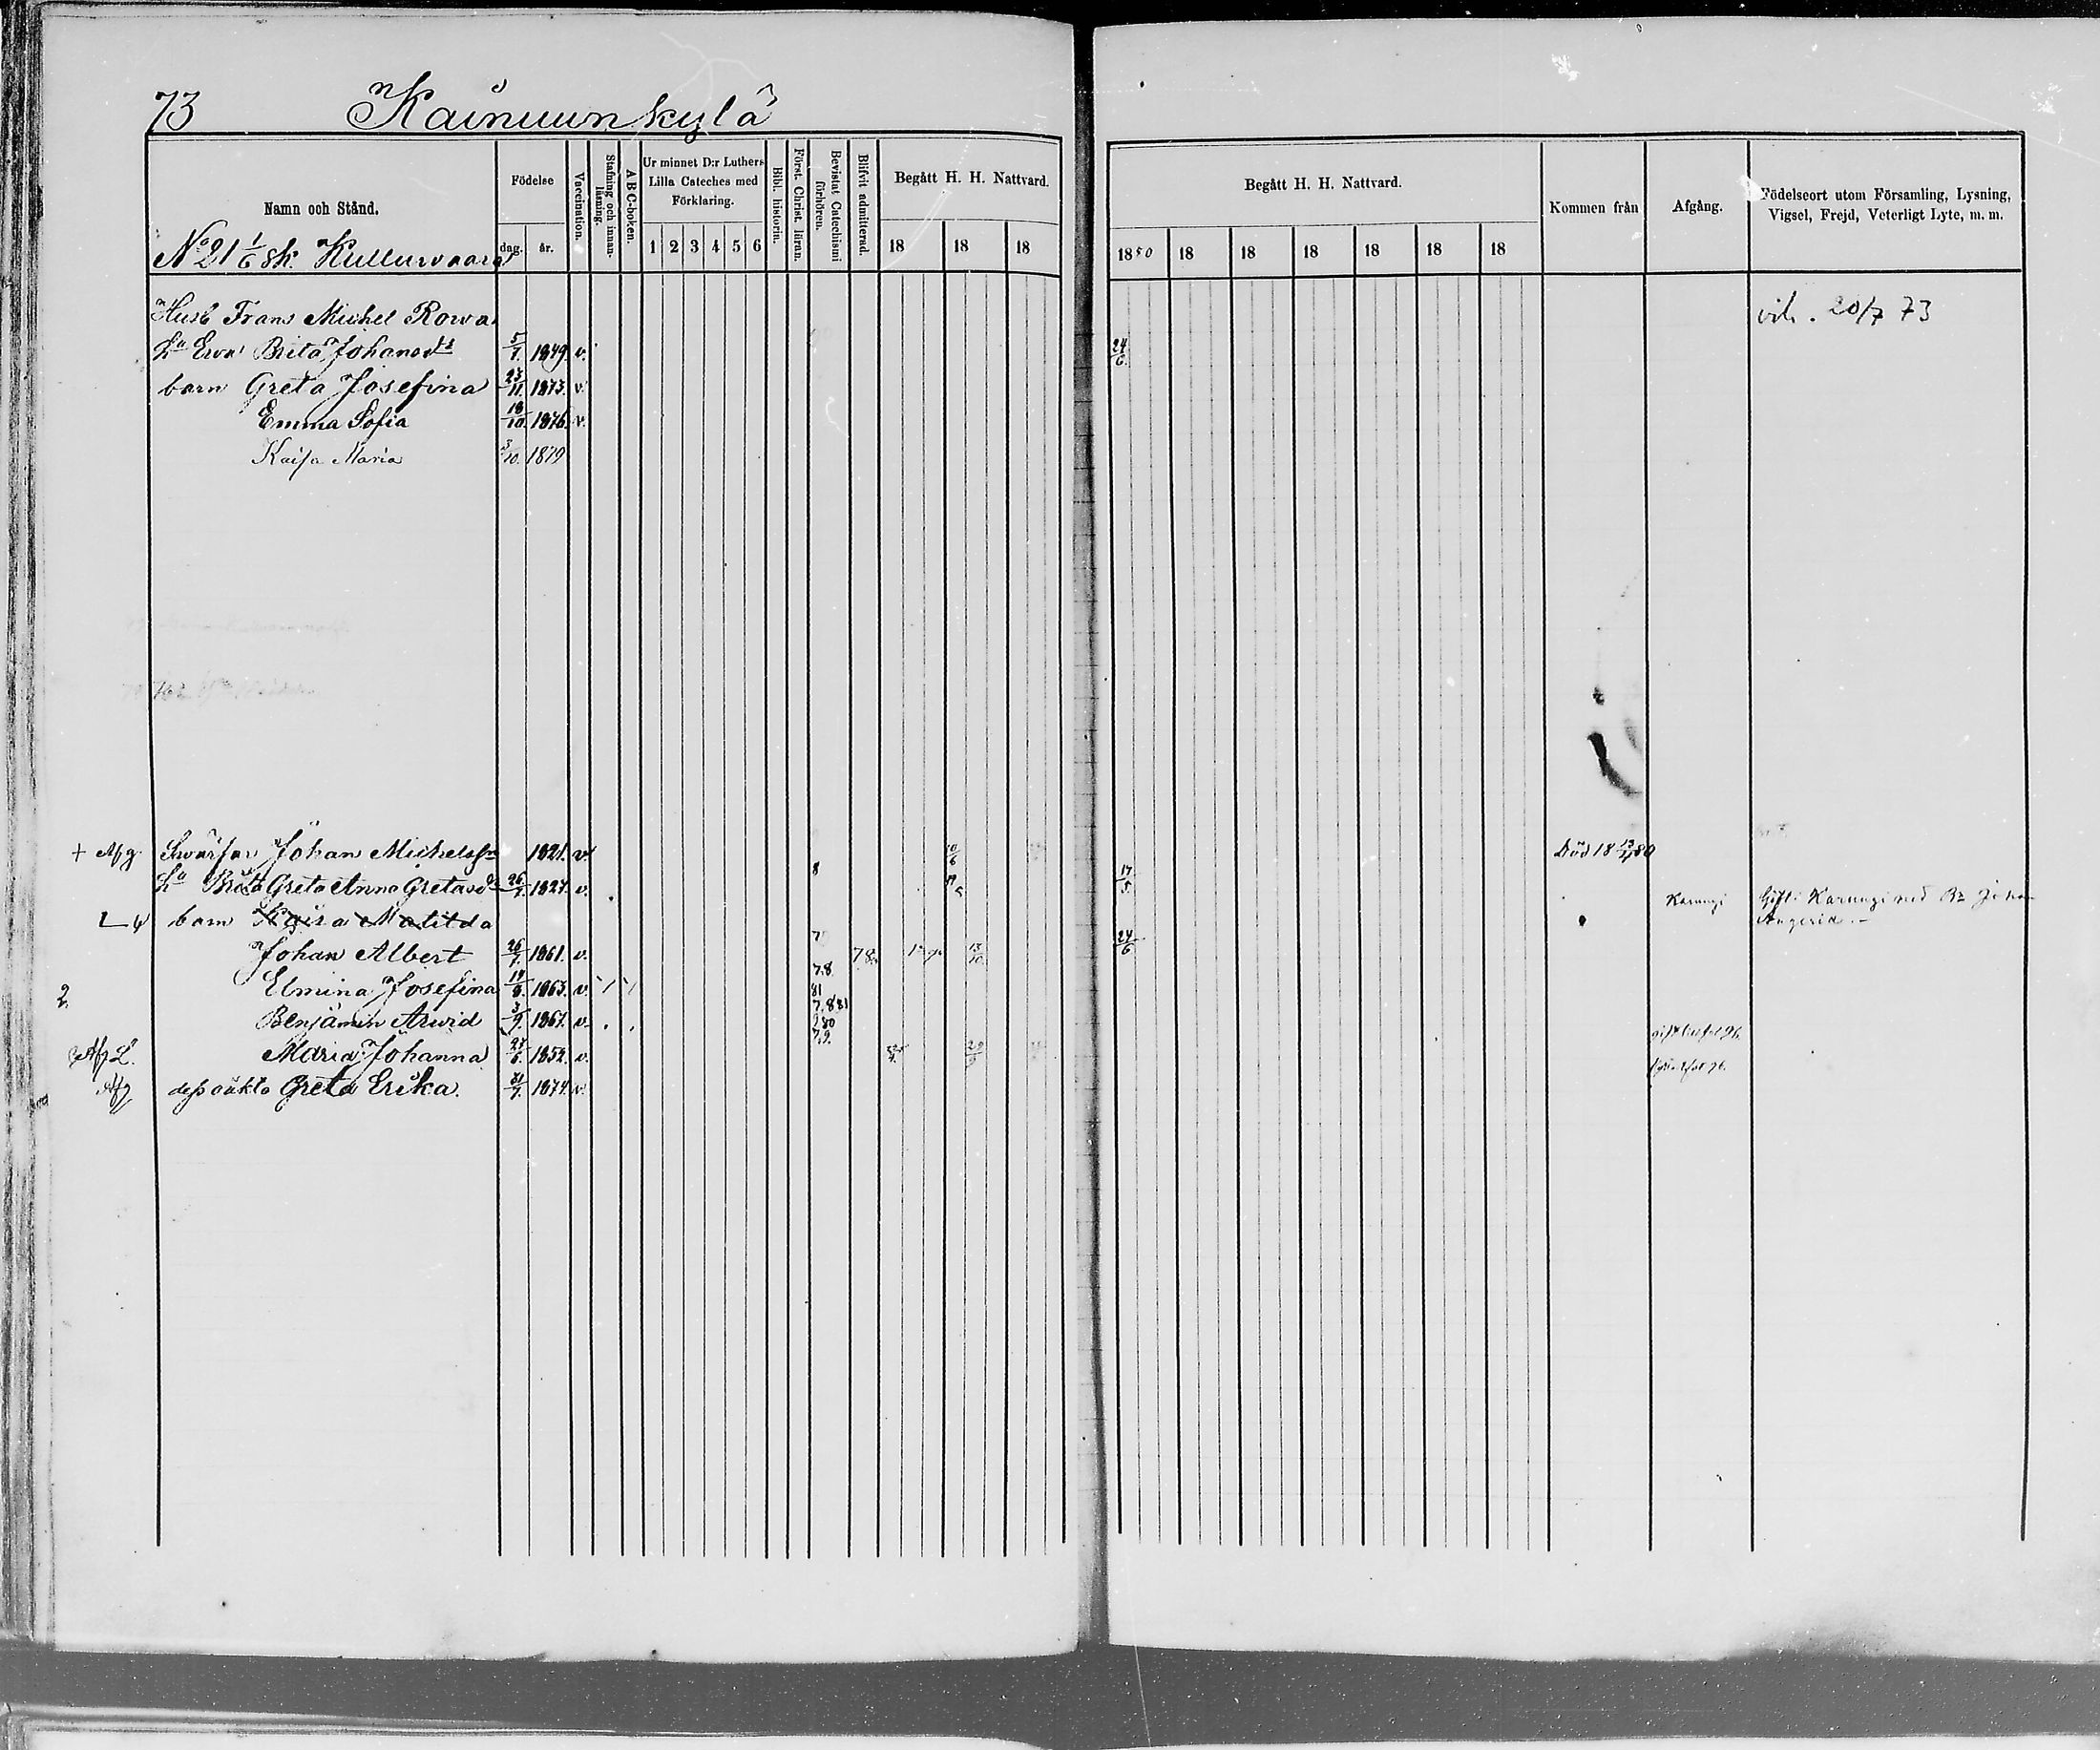 73 Kainuunkylä
Namn och Stånd.
Födelse
dag. år.
Vaccination.
Stafning och innanläsning.
A B C-boken.
Ur minnet D:r Luthers Lilla Cateches med Förklaring.
1 2 3 4 5 6
Bibl. historin.
Först. Christ. läran.
Bevistat Catechismi förhören.
Blifvit admitterad.
Begått H. H. Nattvard.
18 18 18
Begått H. H. Nattvard.
1880 18 18 18 18 18 18
Kommen från
Afgång.
Födelseort utom Församling, Lysning, Vigsel, Frejd, Veterligt Lyte, m. m.
No 21 1/6 sk. Kulluwaara
Husb Frans Michel Rowa vih. 20/7 73
Hu Ewa Brita Johansdr 5/7. 1849. v. 24/6.
barn Greta Josefina 23/11. 1873. v.
Emma Sofia 18/10. 1876. v.
Kaisa Maria 3/10. 1879
+ Afg. Swärfar Johan Michelsson 1821. v. 10/6 Död 18 80
Hu Brita Greta Anna Gretasdr 26/7. 1827. v. 8 17/5
barn Kaisa Matilda Karungi Gift i Karungi med Johan
Johan Albert 26/7. 1861. v. 7 78. 13/10 24/6
Elmina Josefina 19/8. 1863. v. 7.8. 81
2. Benjamin Arwid 3/9. 1867. v. 7.881 80
Afg Maria Johanna 27/6. 1852. v. 7.9.
Afg dess oäkta Greta Erika. 1874. v.